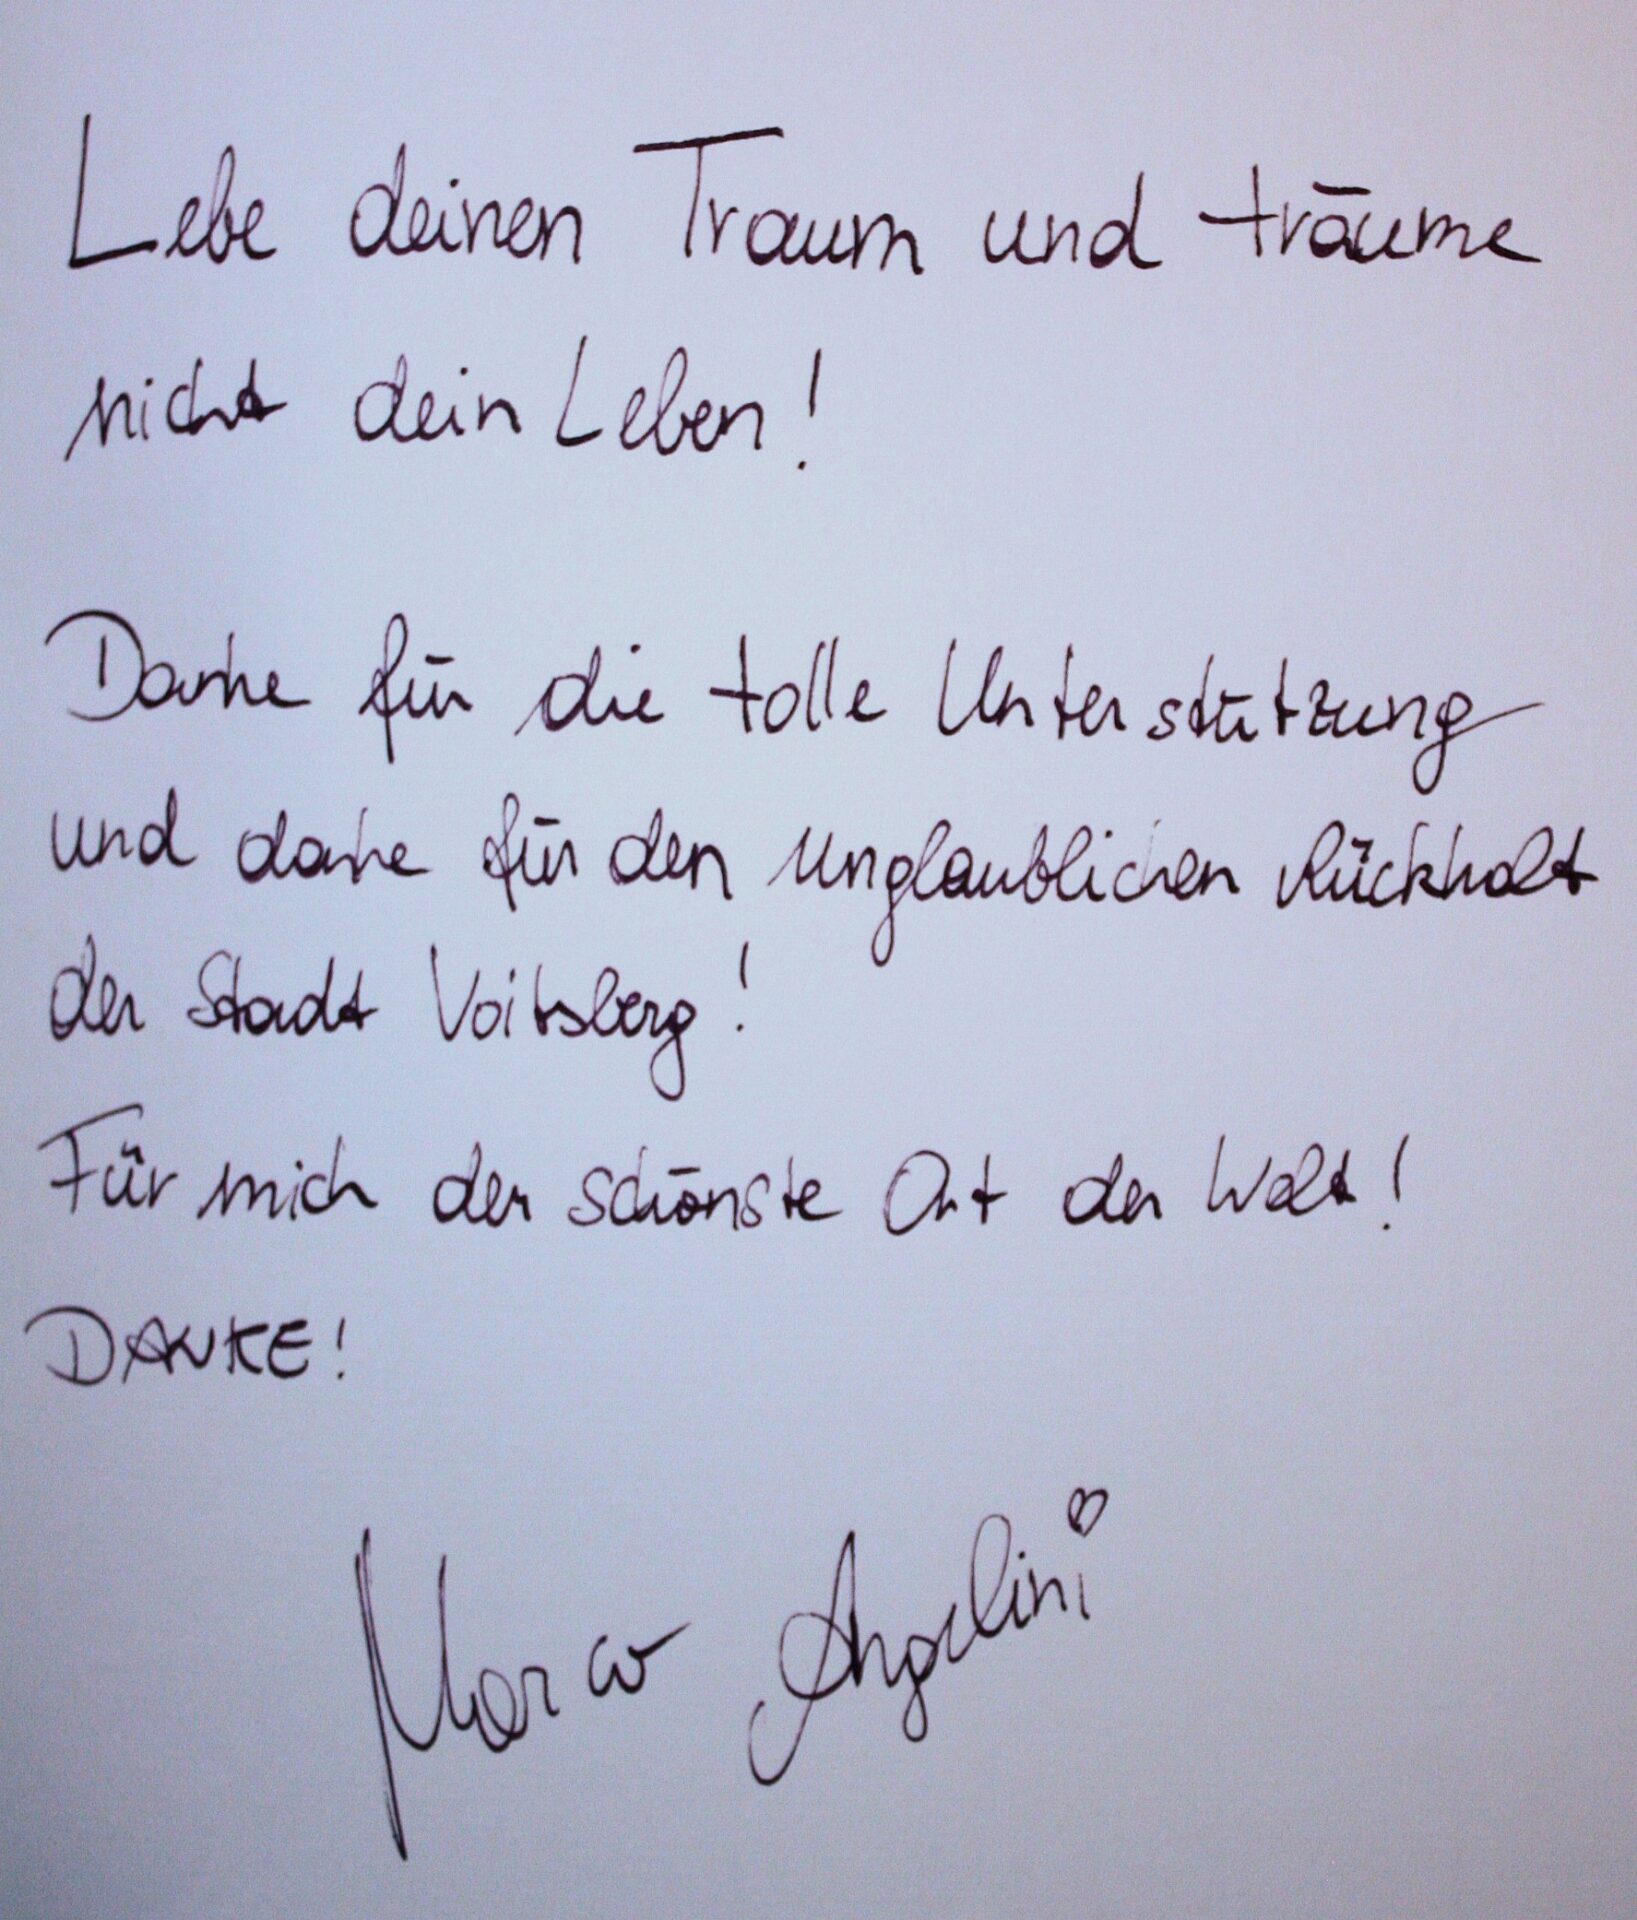 Lebe deinen Traum und träume
nicht dein Leben!
Danke für die tolle Unterstützung
und danke für den unglaublichen Rückhalt
der Stadt Voitsberg!
Für mich der schönste Ort der Welt!
DANKE!
Marco Angelini